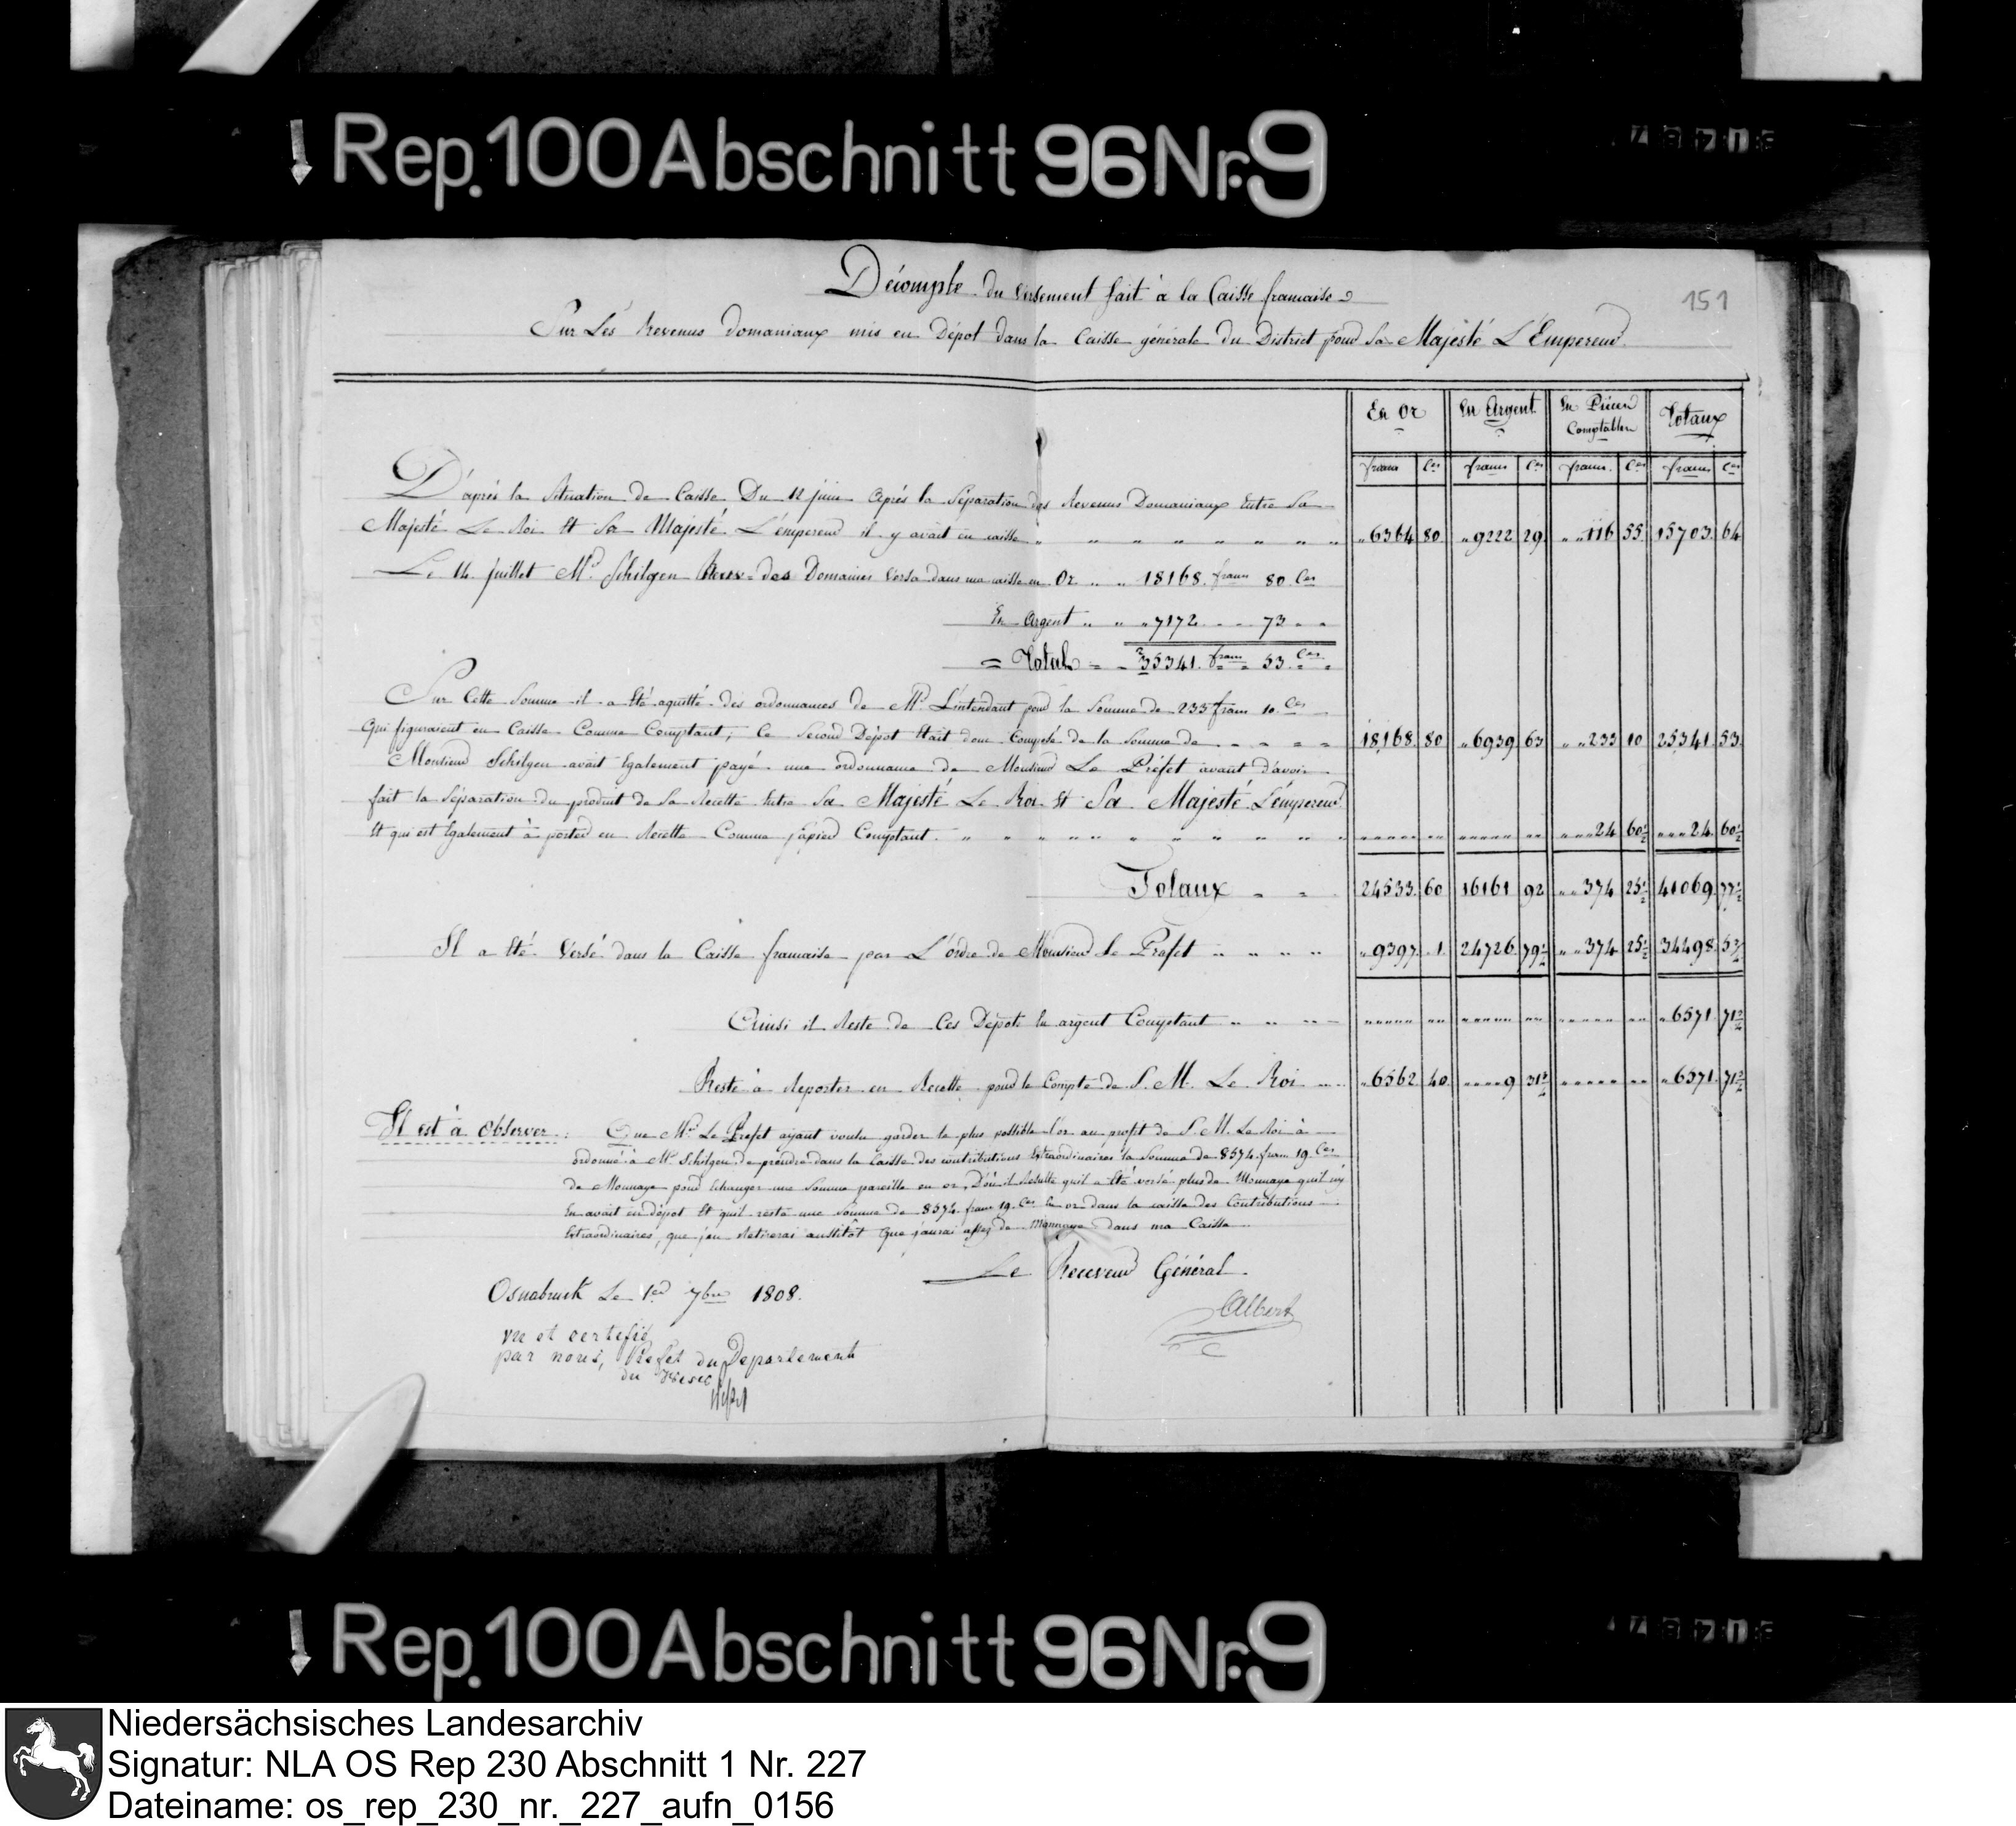 Rep. 100 Abschnitt 96 Nr. 9
151
Décompte du versement fait à la Caisse francaise
Sur Les Revenus domaniaux mis en Dépot dans la Caisse générale du District pour Sa Majesté L'Empereur.
En Or | En Argent | En Pièces Comptables | Totaux
francs | Ces | francs | Ces | francs | Ces | francs | Ces
D'après la Situation de Caisse Du 12 juin après la Séparation des Revenus Domaniaux Entre Sa
Majesté Le Roi Et Sa Majesté L'émpereur il y avait en caisse " " " " " " " " " | " 6364 | 80 | " 9222 | 29 | " " 116 | 55 | 15703 | 64
Le 14 juillet Mr. Schilgen Recev. des Domaines versa dans ma caisse en Or " " 18168 francs 80 Ces
En Argent " " " 7172 " " 73 " "
= Totale = 25341 francs 53 Ces
Sur Cette Somme il a Eté aquitté des ordonnances de Mr. L'intendant pour la Somme de 233 francs 10 Ces
Qui figuraient en Caisse Comme Comptant; Ce Second Dépot Etait donc Composé de la Somme de | 18168 | 80 | " 6939 | 63 | " " 233 | 10 | 25341 | 53
Monsieur Schilgen avait Egalement payé une ordonnance de Monsieur Le Préfet avant d'avoir
fait la Séparation du produit de Sa Recette Entre Sa Majesté Le Roi Et Sa Majesté L'émpereur
Et qui est Egalement à porter en Recette Comme papier Comptant. " " " " " " " " " | " " " " " | " " | " " " " " | " " | " " " 24 | 60½ | " " " 24 | 60½
Totaux " " | 24533 | 60 | 16161 | 92 | " " 374 | 25½ | 41069 | 77½
Il a Eté Versé dans la Caisse francaise par L'ordre de Monsieur le Préfet " " " " | " 9397 | 1 | 24726 | 79½ | " " 374 | 25½ | 34498 | 5¾
Ainsi il Reste de Ces Dépots En argent Comptant " " " " | " " " " " | " " | " " " " " | " " | " " " " " | " " | " 6571 | 71¾
Reste à Reporter en Recette pour le Compte de S. M. Le Roi " " | " 6562 | 40 | " " " " 9 | 31¾ | " " " " " | " " | " 6571 | 71¾
Il est à Observer : Que Mr. Le Préfet ayant voulu garder le plus possible l'or au profit de S. M. Le Roi à
ordonné à Mr. Schilgen de prendre dans la Caisse des contributions Extraordinaires la Somme de 8574 francs 19 Ces
de Monnaye pour Echanger une Somme pareille en or, D'où il Résulte qu'il a Eté versé plus de Monnaye qu'il n'y
En avait en dépot Et qu'il reste une Somme de 8574 francs 19 Ces En or dans la caisse des Contributions
Extraordinaires, que j'en Retirerai aussitôt que j'aurai assez de Monnaye dans ma Caisse
Le Receveur Général.
Osnabruck Le 1er 7bre 1808.
Albert
vu et certefié
par nous, Préfet du Departement
du Weser
Rep. 100 Abschnitt 96 Nr. 9
Niedersächsisches Landesarchiv
Signatur: NLA OS Rep 230 Abschnitt 1 Nr. 227
Dateiname: os_rep_230_nr._227_aufn_0156